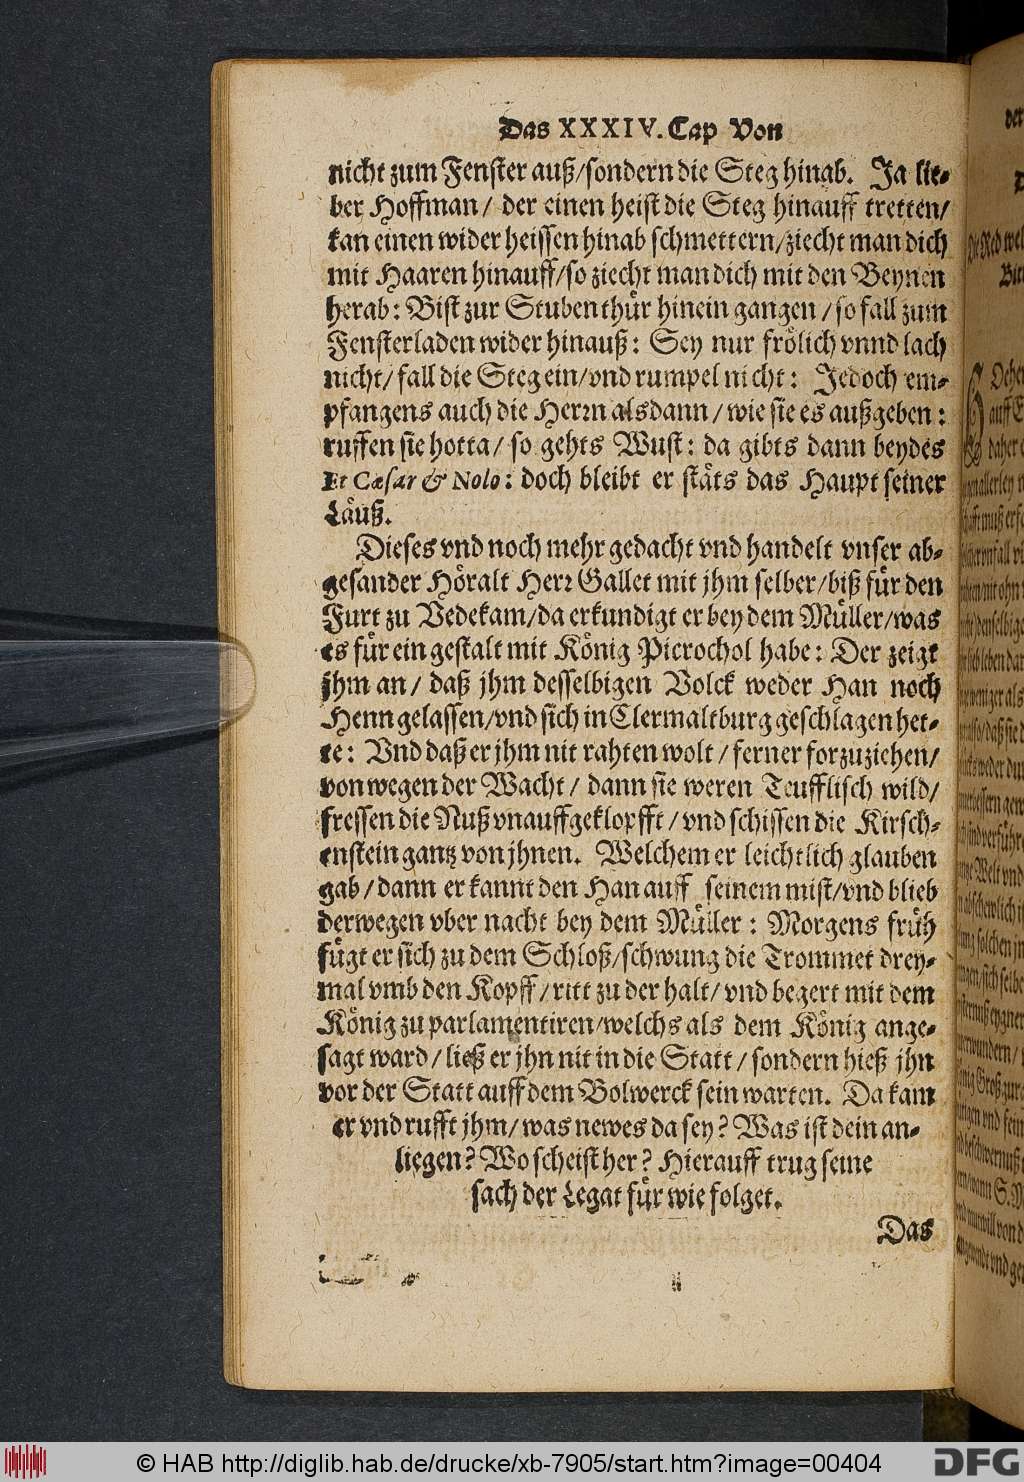 Das XXXIV. Cap Von
nicht zum Fenster auß/sondern die Steg hinab. Ja lie-
ber Hoffman/ der einen heist die Steg hinauff tretten/
kan einen wider heissen hinab schmettern/ziecht man dich
mit Haaren hinauff/so ziecht man dich mit den Beynen
herab: Bist zur Stubenthür hinein gangen/so fall zum
Fensterladen wider hinauß: Sey nur frölich vnnd lach
nicht/fall die Steg ein/vnd rumpel nicht: Jedoch em-
pfangens auch die Herrn alsdann/wie sie es außgeben:
ruffen sie hotta/ so gehts Wust: da gibts dann beydes
Et Cæsar & Nolo: doch bleibt er stäts das Haupt seiner
Läuß.
Dieses vnd noch mehr gedacht vnd handelt vnser ab-
gesander Höralt Herr Gallet mit jhm selber/biß für den
Furt zu Vedekam/da erkundigt er bey dem Müller/was
es für ein gestalt mit König Picrochol habe: Der zeigt
jhm an/ daß jhm desselbigen Volck weder Han noch
Henn gelassen/vnd sich in Clermaltburg geschlagen het-
te: Vnd daß er jhm nit rahten wolt/ferner forzuziehen/
von wegen der Wacht/ dann sie weren Teufflisch wild/
fressen die Nuß vnauffgeklopfft/vnd schissen die Kirsch-
enstein gantz von jhnen. Welchem er leichtlich glauben
gab/dann er kannt den Han auff seinem mist/vnd blieb
derwegen vber nacht bey dem Müller: Morgens früh
fügt er sich zu dem Schloß/schwung die Trommet drey-
mal vmb den Kopff/ritt zu der halt/vnd begert mit dem
König zu parlamentiren/welchs als dem König ange-
sagt ward/ließ er jhn nit in die Statt/sondern hieß jhn
vor der Statt auff dem Bolwerck sein warten. Da kam
er vnd rufft jhm/was newes da sey? Was ist dein an-
liegen? Wo scheist her? Hierauff trug seine
sach der Legat für wie folget.
Das
© HAB http://diglib.hab.de/drucke/xb-7905/start.htm?image=00404
DFG